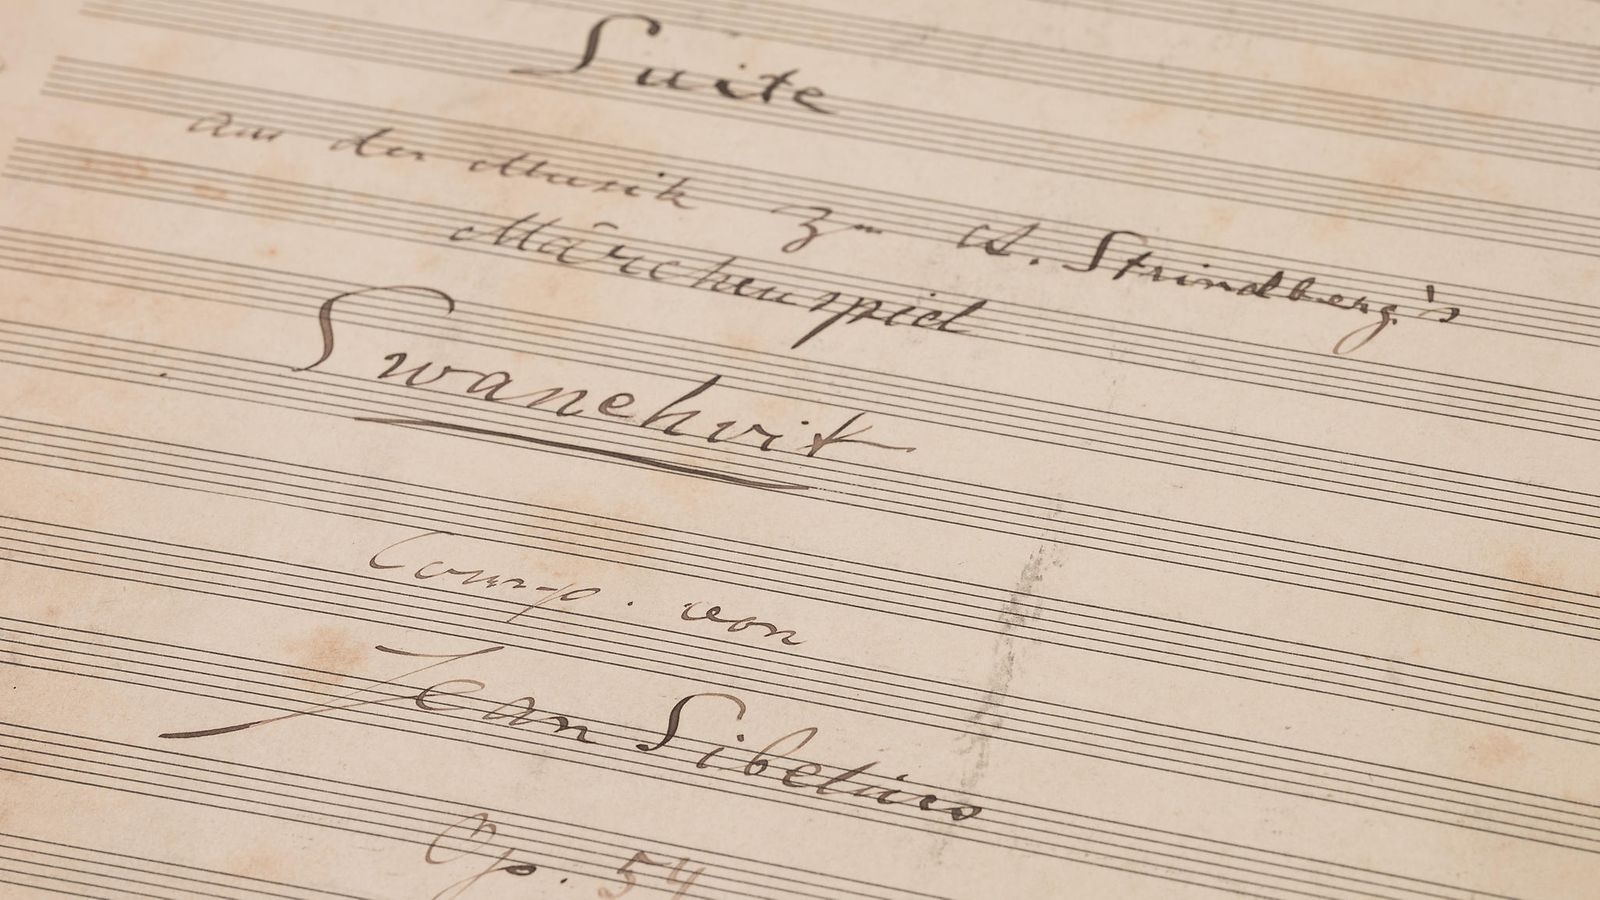 Suite
aus der Musik zu A. Strindberg's
Märchenspiel
Swanehvit
Comp. von
Jean Sibelius
Op. 54